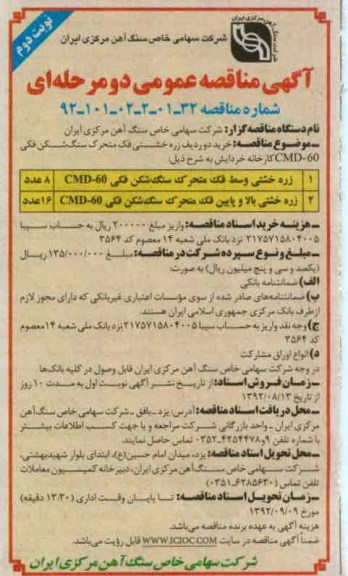 نوبت دوم
شرکت سهامی خاص سنگ آهن مرکزی ایران
آگهی مناقصه عمومی دو مرحله‌ای
شماره مناقصه ۳۲-۰۱-۲-۰۲-۱۰۱-۹۲
نام دستگاه مناقصه گزار: شرکت سهامی خاص سنگ آهن مرکزی ایران
ـ موضوع مناقصه: خرید دو ردیف زره خشتی فک متحرک سنگ‌شکن فکی
CMD-60 کارخانه خردایش به شرح ذیل:
۱ زره خشتی وسط فک متحرک سنگ‌شکن فکی CMD-60 ۸ عدد
۲ زره خشتی بالا و پایین فک متحرک سنگ‌شکن فکی CMD-60 ۱۶ عدد
ـ هزینه خرید اسناد مناقصه: واریز مبلغ ۲۰۰۰۰۰ ریال به حساب سیبا
۲۱۷۵۷۱۵۸۰۴۰۰۵ نزد بانک ملی شعبه ۱۴ معصوم کد ۳۵۶۴
ـ مبلغ و نوع سپرده شرکت در مناقصه: مبلغ ۱۳۵/۰۰۰/۰۰۰ ریال
(یکصد و سی و پنج میلیون ریال) به صورت:
الف) ضمانتنامه بانکی
ب) ضمانتنامه‌های صادر شده از سوی مؤسسات اعتباری غیربانکی که دارای مجوز لازم
از طرف بانک مرکزی جمهوری اسلامی ایران هستند.
ج) وجه نقد واریز به حساب سیبا ۲۱۷۵۷۱۵۸۰۴۰۰۵ نزد بانک ملی شعبه ۱۴ معصوم
کد ۳۵۶۴
د) انواع اوراق مشارکت
در وجه شرکت سهامی خاص سنگ آهن مرکزی ایران قابل وصول در کلیه بانک‌ها
ـ زمان فروش اسناد: از تاریخ نشر آگهی نوبت اول به مدت ۱۰ روز
از تاریخ ۱۳۹۲/۰۸/۱۳
ـ محل دریافت اسناد مناقصه: آدرس: یزد ـ بافق ـ شرکت سهامی خاص سنگ آهن
مرکزی ایران ـ واحد بازرگانی شرکت مراجعه و یا جهت کسب اطلاعات بیشتر
با شماره تلفن ۹و۴۲۵۴۴۷۸-۰۳۵۲ تماس حاصل نمایند.
ـ محل تحویل اسناد مناقصه: یزد، میدان امام حسین(ع)، ابتدای بلوار شهیدبهشتی،
شرکت سهامی خاص سنگ آهن مرکزی ایران، دبیرخانه کمیسیون معاملات
تلفن تماس (۶۲۸۵۶۳۰-۰۳۵۱)
ـ زمان تحویل اسناد مناقصه: تا پایان وقت اداری (۱۳:۳۰ دقیقه)
مورخ ۱۳۹۲/۰۹/۰۹
هزینه آگهی به عهده برنده مناقصه می‌باشد.
ضمناً آگهی مناقصه در سایت WWW.ICIOC.COM قابل رؤیت می‌باشد.
شرکت سهامی خاص سنگ آهن مرکزی ایران